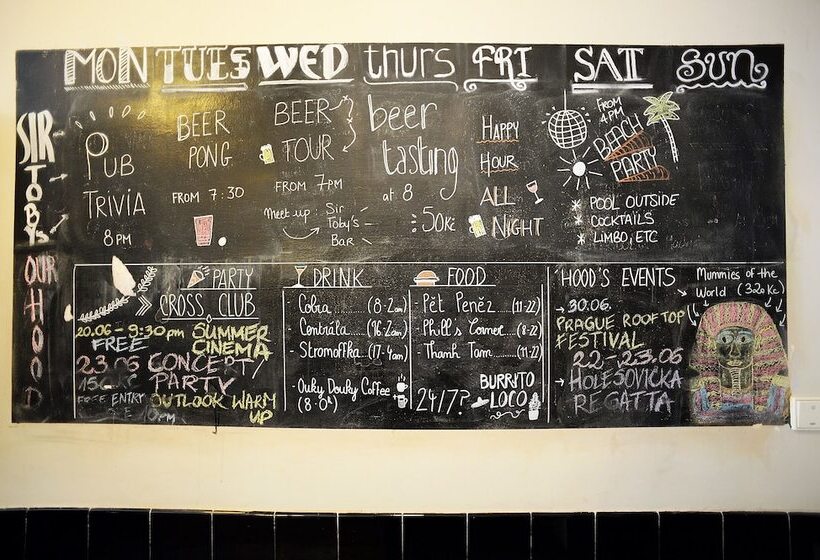 MON TUES WED thurs FRI SAT SUN
SIR
TOBYS
PUB
TRIVIA
8PM
BEER
PONG
FROM 7:30
BEER
TOUR
FROM 7PM
Meet up: Sir
Toby's
Bar
beer
tasting
at 8
50Kč
HAPPY
HOUR
ALL
NIGHT
FROM
4PM
BEACH
PARTY
* POOL OUTSIDE
* COCKTAILS
* LIMBO, ETC
OUR
HOOD
PARTY
CROSS CLUB
20.06 - 9:30pm SUMMER
FREE CINEMA
23.06 CONCERT/
PARTY
FREE ENTRY OUTLOOK WARM
UP
DRINK
- Cobra ... (8-2am)
- Centrála ... (16-2am)
- Stromoffka ... (17-4am)
- Ouky Douky Coffee
FOOD
- Pět Peněz ... (11-22)
- Phill's Corner ... (8-22)
- Thanh Tam ... (11-22)
24/7? BURRITO
LOCO
HOOD'S EVENTS
30.06.
PRAGUE ROOFTOP
FESTIVAL
22-23.06
HOLEŠOVICKA
REGATTA
Mummies of the
World (320 Kč)